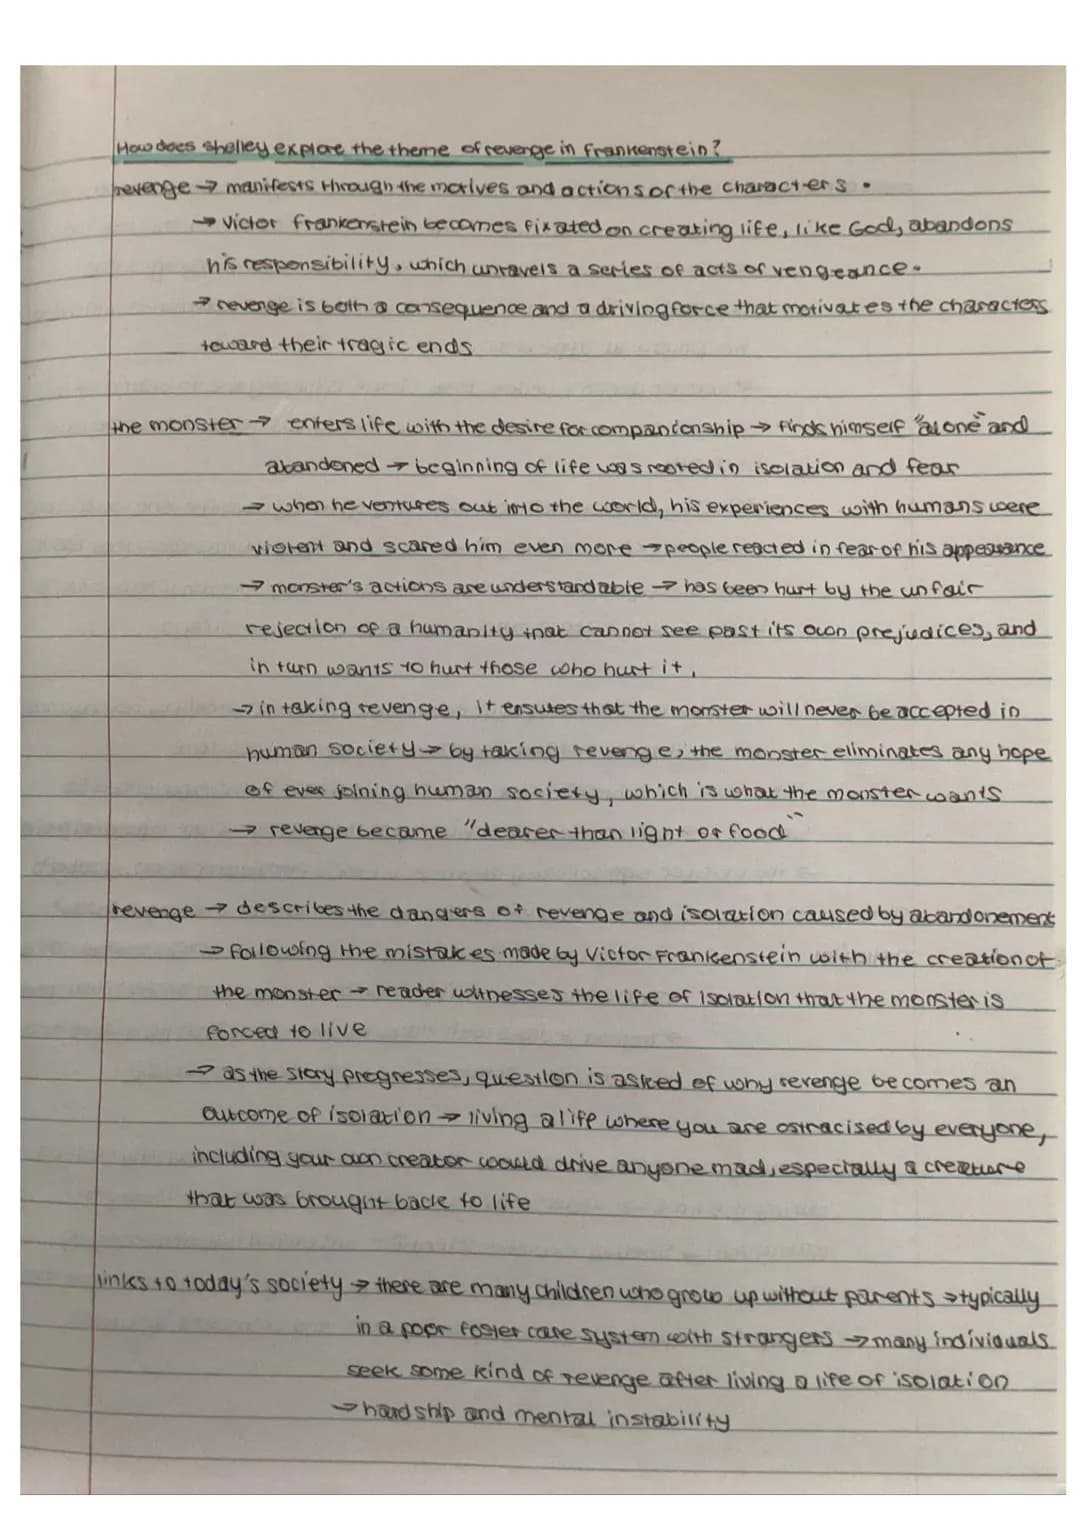 How does Shelley explore the theme of revenge in Frankenstein?
revenge → manifests through the motives and actions of the characters.
→ Victor Frankenstein becomes fixated on creating life, like God, abandons
his responsibility, which unravels a series of acts of vengeance.
→ revenge is both a consequence and a driving force that motivates the characters
toward their tragic ends
the monster → enters life with the desire for companionship → finds himself "alone" and
abandoned → beginning of life was rooted in isolation and fear
→ when he ventures out into the world, his experiences with humans were
violent and scared him even more → people reacted in fear of his appearance
→ monster's actions are understandable → has been hurt by the unfair
rejection of a humanity that cannot see past its own prejudices, and
in turn wants to hurt those who hurt it.
→ in taking revenge, it ensures that the monster will never be accepted in
human society → by taking revenge, the monster eliminates any hope
of ever joining human society, which is what the monster wants
→ revenge became "dearer than light or food"
revenge → describes the dangers of revenge and isolation caused by abandonement
→ following the mistakes made by Victor Frankenstein with the creation of
the monster → reader witnesses the life of isolation that the monster is
forced to live
→ as the story progresses, question is asked of why revenge becomes an
outcome of isolation → living a life where you are ostracised by everyone,
including your own creator would drive anyone mad, especially a creature
that was brought back to life
links to today's society → there are many children who grow up without parents → typically
in a poor foster care system with strangers → many individuals
seek some kind of revenge after living a life of isolation
→ hardship and mental instability